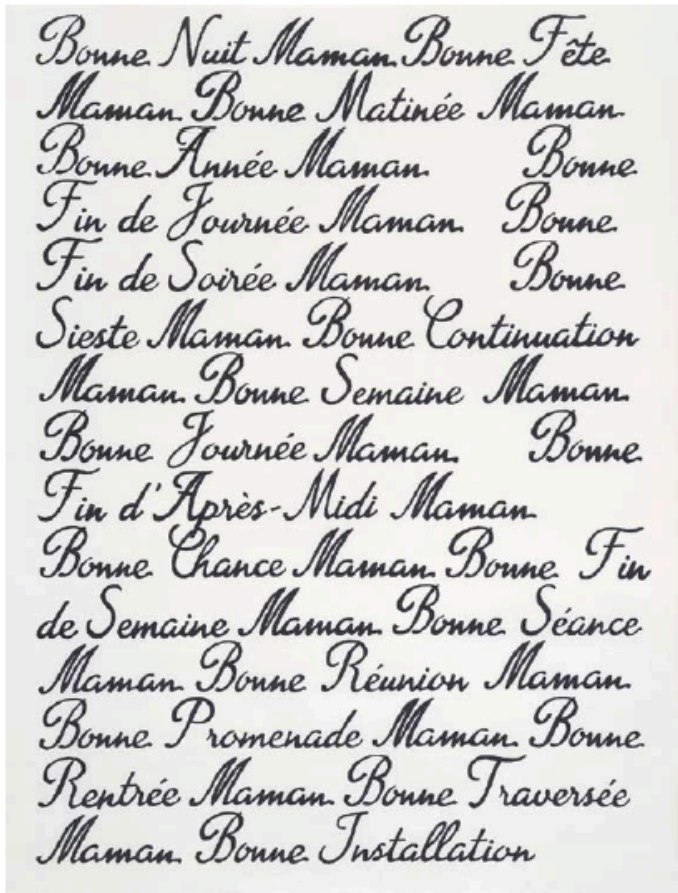 Bonne Nuit Maman Bonne Fête
Maman Bonne Matinée Maman
Bonne Année Maman Bonne
Fin de Journée Maman Bonne
Fin de Soirée Maman Bonne
Sieste Maman Bonne Continuation
Maman Bonne Semaine Maman
Bonne Journée Maman Bonne
Fin d'Après-Midi Maman
Bonne Chance Maman Bonne Fin
de Semaine Maman Bonne Séance
Maman Bonne Réunion Maman
Bonne Promenade Maman Bonne
Rentrée Maman Bonne Traversée
Maman Bonne Installation